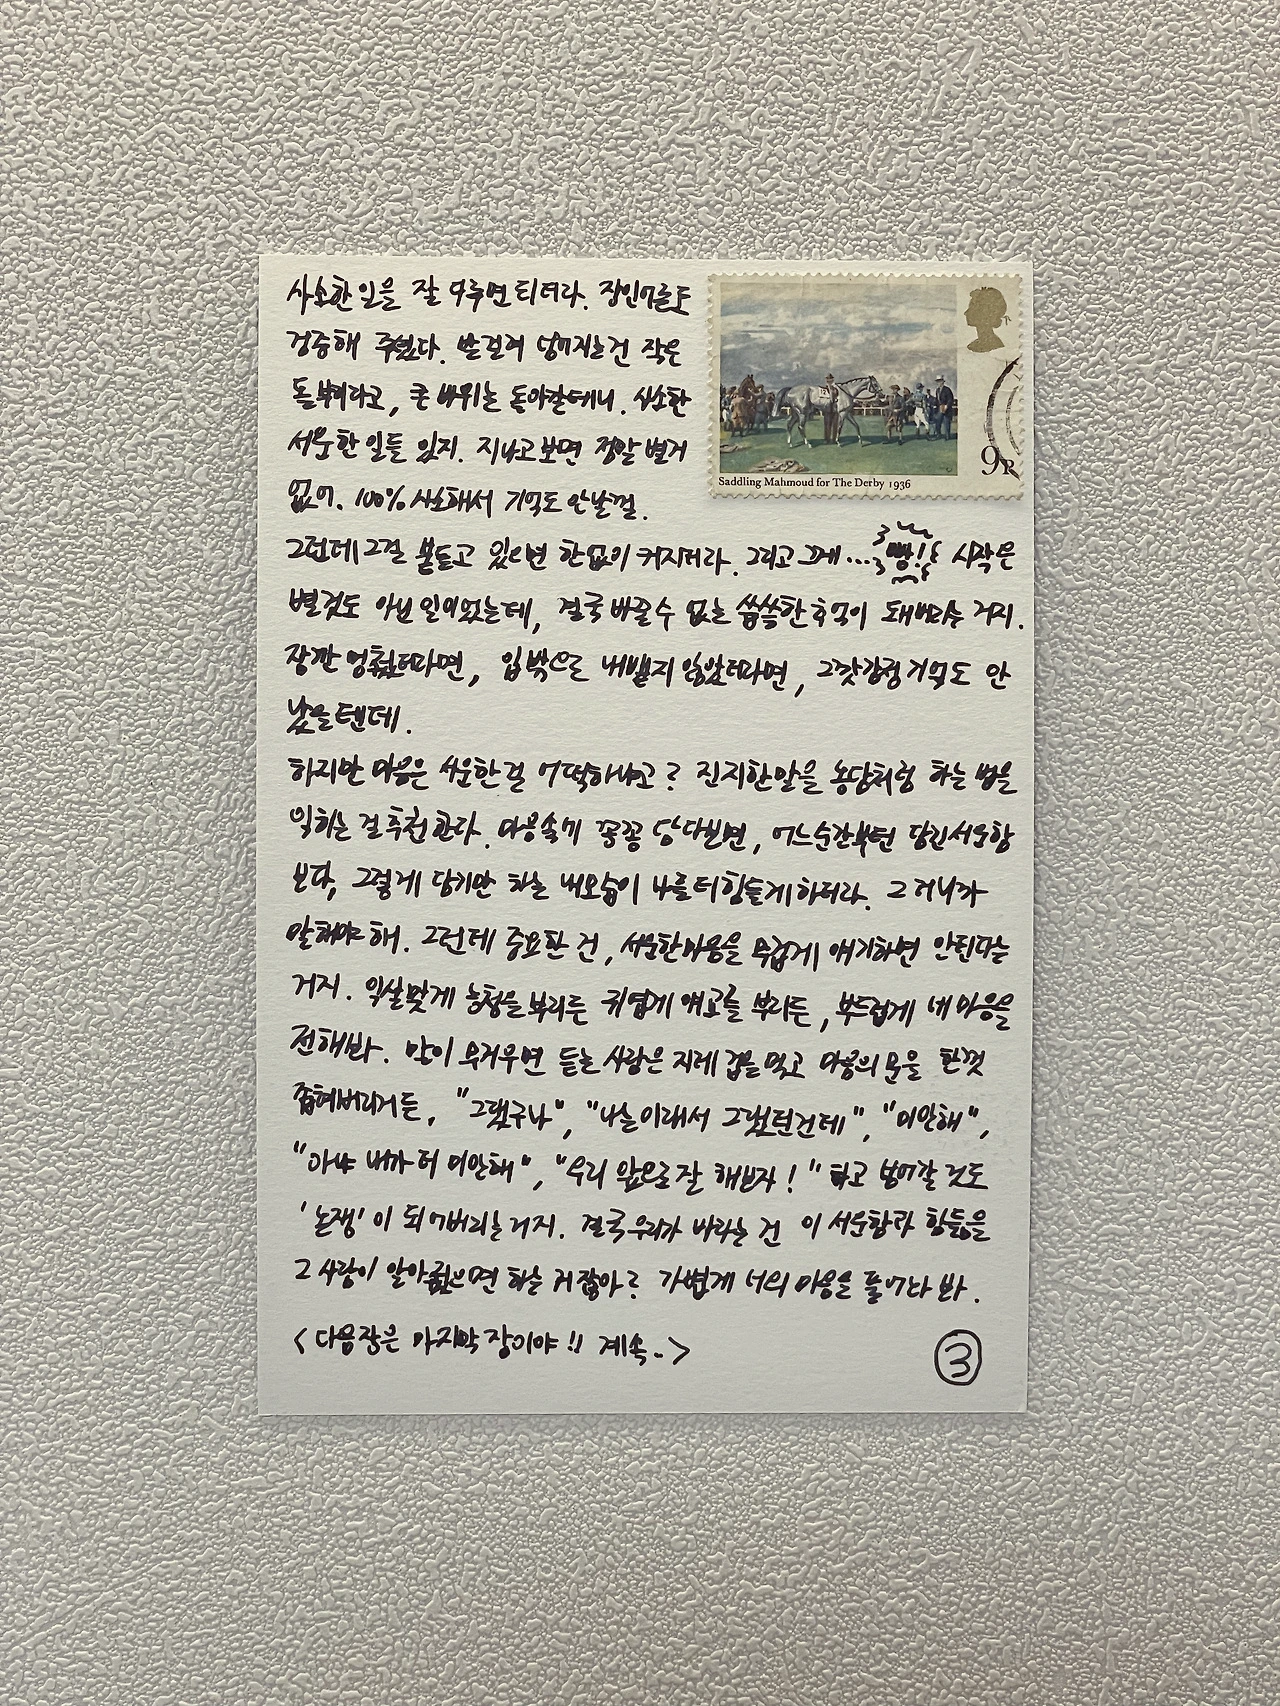 사소한 일을 잘 다루면 되더라. 장인어른도
검증해 주셨다. 발 걸려 넘어지는 건 작은
돌부리라고, 큰 바위는 돌아갈테니. 사소한
서운한 일들 있지. 지나고 보면 정말 별거
없어. 100% 사소해서 기억도 안날걸.
Saddling Mahmoud for The Derby 1936
9P
그런데 그걸 붙들고 있으면 한없이 커지더라. 그리고 그게... 빵! 시작은
별것도 아닌 일이었는데, 결국 바꿀 수 없는 씁쓸한 추억이 돼버리는 거지.
잠깐 멈췄더라면, 입 밖으로 내뱉지 않았더라면, 그깟 감정 기억도 안
났을텐데.
하지만 마음은 서운한 걸 어떡하냐고? 진지한 말을 농담처럼 하는 법을
익히는 걸 추천한다. 마음속에 꽁꽁 담다보면, 어느순간부턴 담긴 서운함
보다, 그렇게 담기만 하는 내 모습이 나를 더 힘들게 하더라. 그러니까
말해야 해. 그런데 중요한 건, 서운한 마음을 무겁게 얘기하면 안된다는
거지. 익살맞게 능청을 부리든 귀엽게 애교를 부리든, 부드럽게 네 마음을
전해봐. 말이 무거우면 듣는 사람은 지레 겁을 먹고 마음의 문을 한껏
좁혀버리거든. "그랬구나", "나는 이래서 그랬던건데", "미안해",
"아냐 내가 더 미안해", "우리 앞으로 잘 해보자!" 하고 넘어갈 것도
'논쟁'이 되어버리는 거지. 결국 우리가 바라는 건 이 서운함과 힘듦을
그 사람이 알아줬으면 하는 거잖아? 가볍게 너의 마음을 풀어놔 봐.
<다음 장은 마지막 장이야!! 계속..>
③